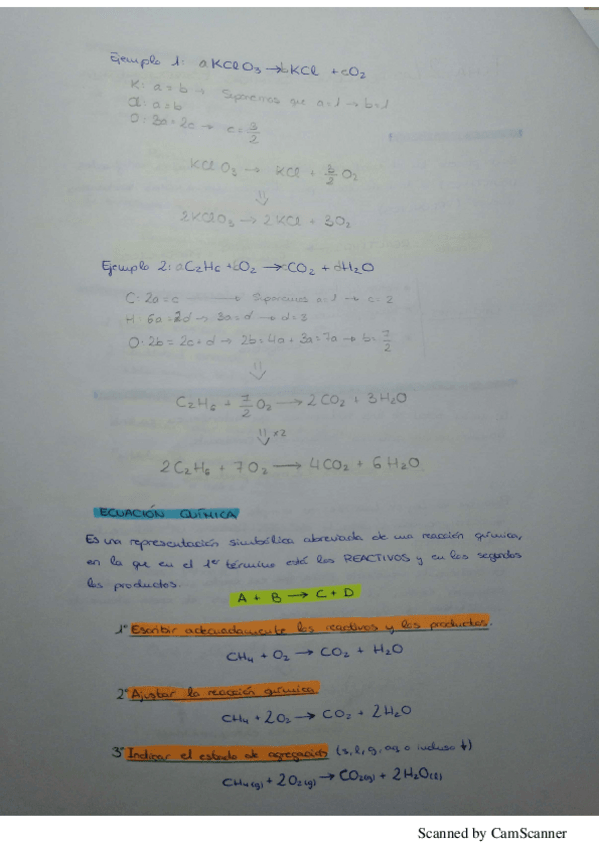 Ejemplo 1: aKClO3 → bKCl + cO2
K: a = b → Suponemos que a=1 → b=1
Cl: a = b
O: 3a = 2c → c = 3/2
KClO3 → KCl + 3/2 O2
⇓
2KClO3 → 2KCl + 3O2
Ejemplo 2: aC2H6 + bO2 → cCO2 + dH2O
C: 2a = c → Suponemos a=1 → c=2
H: 6a = 2d → 3a = d → d=3
O: 2b = 2c + d → 2b = 4a + 3a = 7a → b = 7/2
⇓
C2H6 + 7/2 O2 → 2CO2 + 3H2O
⇓ x2
2C2H6 + 7O2 → 4CO2 + 6H2O
ECUACIÓN QUÍMICA
Es una representación simbólica abreviada de una reacción química,
en la que en el 1er término está los REACTIVOS y en los segundos
los productos.
A + B → C + D
1º Escribir adecuadamente los reactivos y los productos.
CH4 + O2 → CO2 + H2O
2º Ajustar la reacción química
CH4 + 2O2 → CO2 + 2H2O
3º Indicar el estado de agregación (s, l, g, aq o incluso ↓)
CH4(g) + 2O2(g) → CO2(g) + 2H2O(l)
Scanned by CamScanner